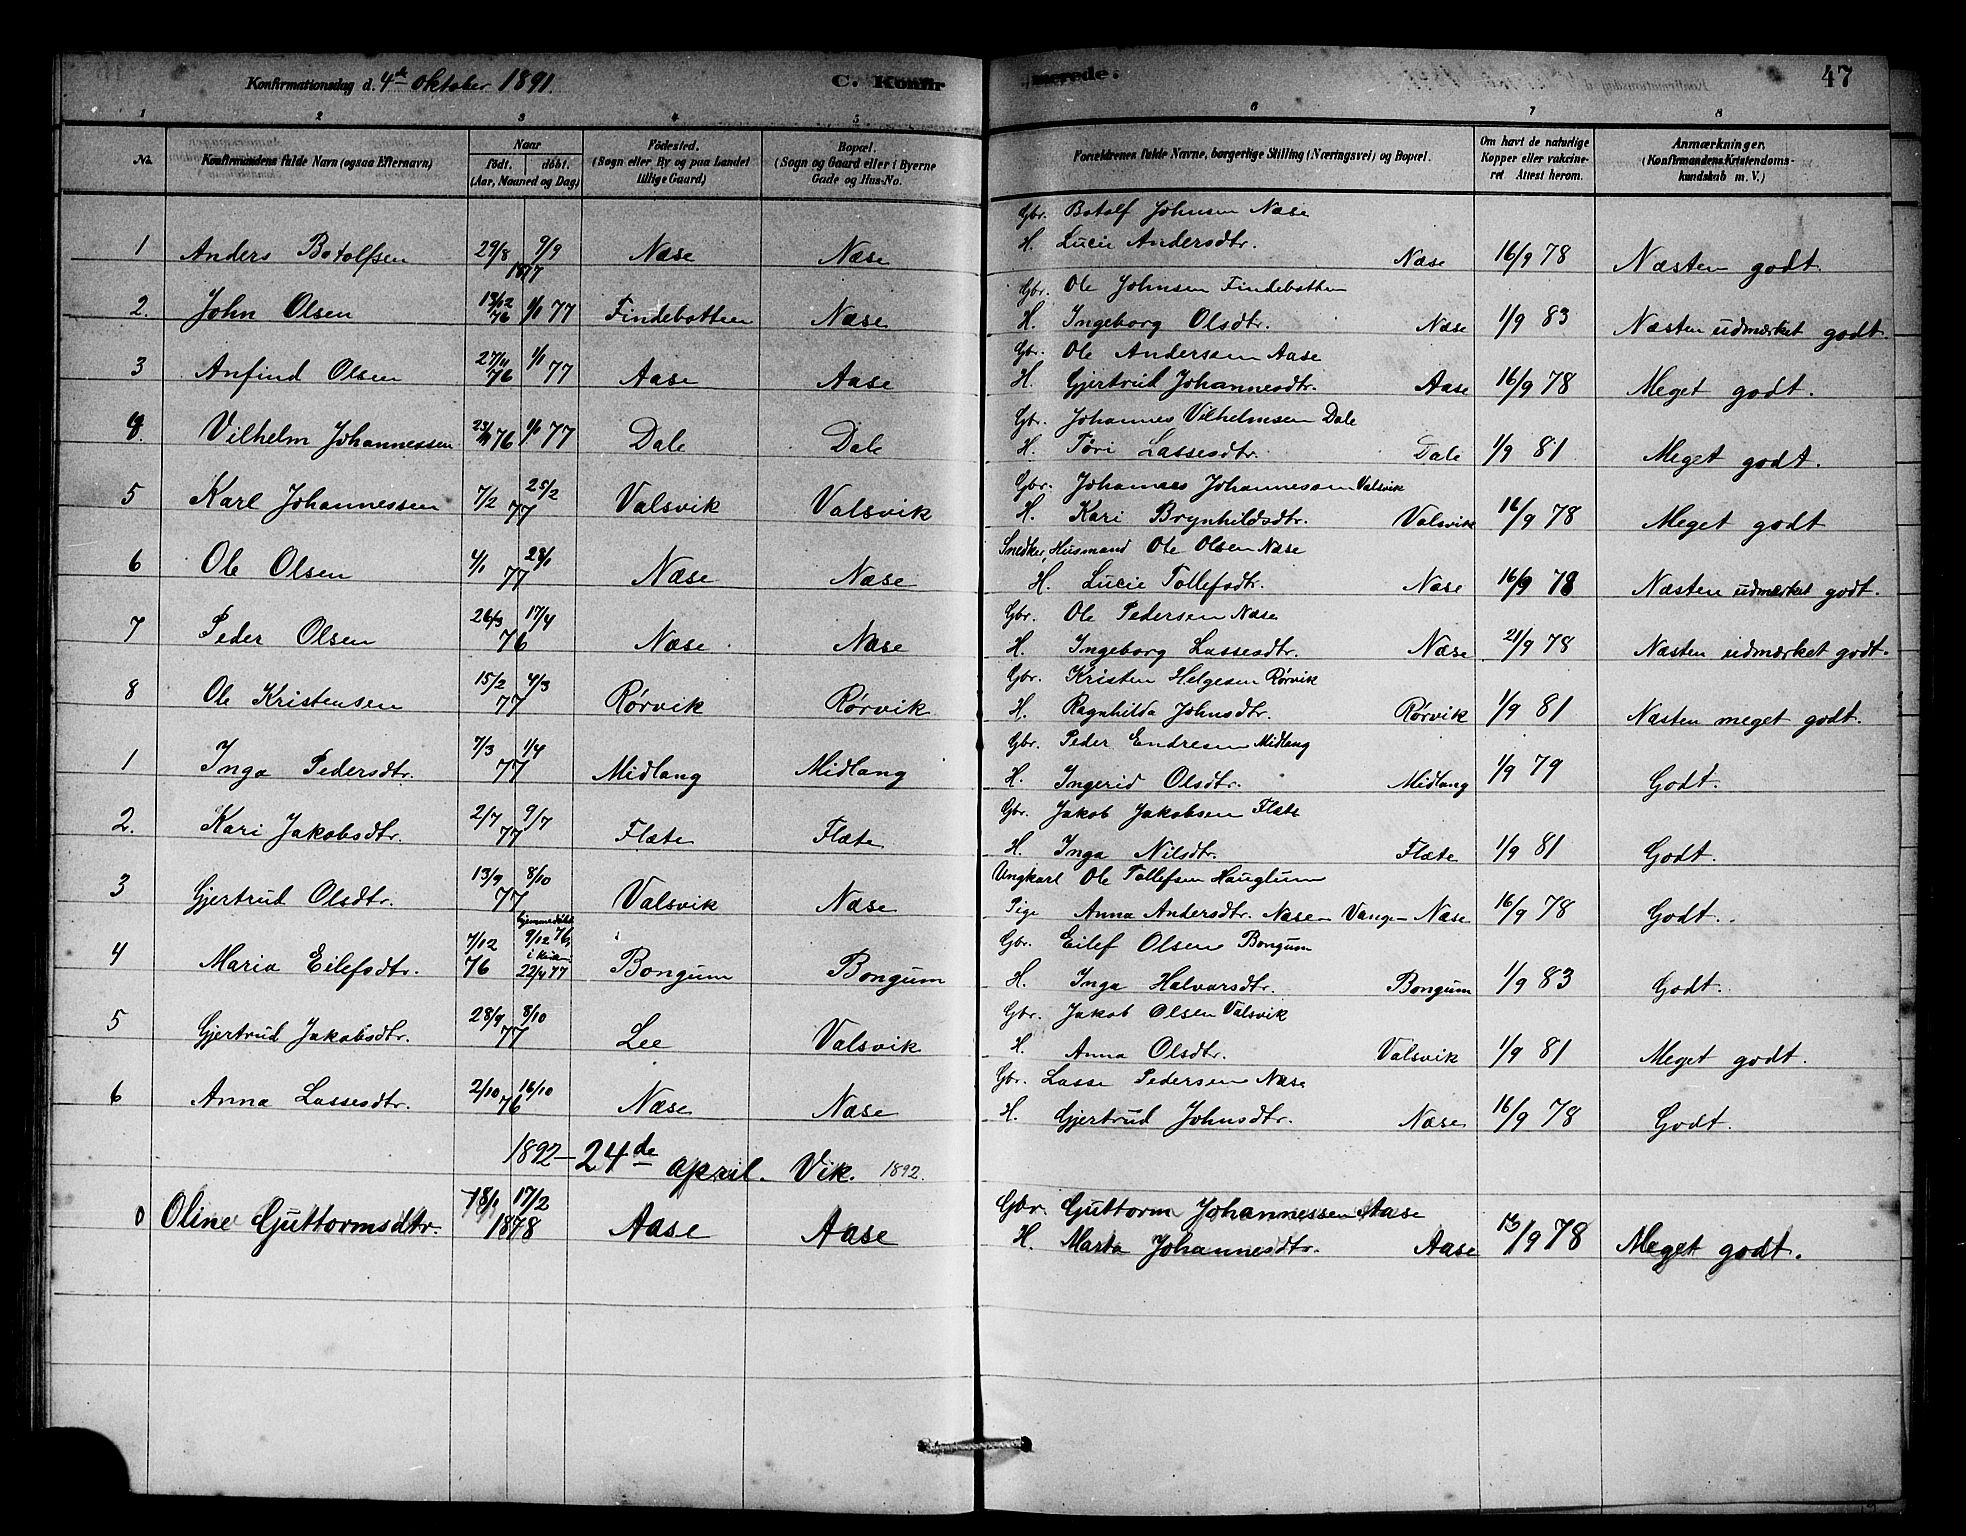 Konfirmationsdag d. 4de oktober 1891. C. Konfirmerede. 47
1 2 3 4 5 6 7 8
No. Konfirmandens fulde Navn (ogsaa Efternavn) Naar födt. döbt. (Aar, Maaned og Dag) Födested. (Sogn eller By og paa Landet tillige Gaard) Bopæl. (Sogn og Gaard eller i Byerne Gade og Hus-No. Forældrenes fulde Navne, borgerlige Stilling (Næringsvei) og Bopæl. Om havt de naturlige Kopper eller vakcineret Attest herom. Anmærkninger. (Konfirmandens Kristendomskundskab m. V.)
Gbr. Botolf Johnsen Næse
1 Anders Botolfsen 29/8 9/9 1877 Næse Næse H. Lucie Andersdtr. Næse 16/9 78 Næsten godt.
Gbr. Ole Johnsen Findebotten
2. John Olsen 13/12 76 1/1 77 Findebotten Næse H. Ingeborg Olsdtr. Næse 1/9 83 Næsten udmærket godt.
Gbr. Ole Anderssen Aase
3 Anfind Olsen 27/11 76 1/1 77 Aase Aase H. Gjertrud Johannesdtr. Aase 16/9 78 Meget godt.
Gbr. Johannes Vilhelmsen Dale
4. Vilhelm Johannessen 23/11 76 1/1 77 Dale Dale H. Tøri Lassesdtr. Dale 1/9 81 Meget godt.
Gbr. Johannes Johannessen Valsvik
5 Karl Johannessen 7/2 25/2 77 Valsvik Valsvik H. Kari Brynhildsdtr. Valsvik 16/9 78 Meget godt
Snedker, Husmand Ole Olsen Næse
6 Ole Olsen 4/1 28/1 77 Næse Næse H. Lucie Tollefsdtr. Næse 16/9 78 Næsten udmærket godt.
Gbr. Ole Pedersen Næse
7 Peder Olsen 26/3 17/4 76 Næse Næse H. Ingeborg Lassesdtr. Næse 21/9 78 Næsten udmærket godt.
Gbr. Kristen Helgesen Rørvik
8 Ole Kristensen 15/2 4/3 77 Rørvik Rørvik H. Ragnhilda Johnsdtr. Rørvik 1/9 81 Næsten meget godt.
Gbr. Peder Endresen Midlang
1 Inga Pedersdtr. 7/3 1/4 77 Midlang Midlang H. Ingerid Olsdtr. Midlang 1/9 79 Godt.
Gbr. Jakob Jakobsen Flæte
2. Kari Jakobsdtr. 2/7 9/7 77 Flæte Flæte H. Inga Nilsdtr. Flæte 1/9 81 Godt.
Ungkarl Ole Tollefsen Hauglum
3 Gjertrud Olsdtr. 13/9 8/10 77 Valsvik Næse Pige Anna Andersdtr. Næse - Vange - Næse 16/9 78 Godt.
Gbr. Eilef Olsen Bongum
4 Maria Eilefsdtr. 7/12 76 hjemmedøbt 9/12 76, i 22/4 77 Bongum Bongum H. Inga Halvarsdtr. Bongum 1/9 83 Godt.
Gbr. Jakob Olsen Valsvik
5 Gjertrud Jakobsdtr. 28/9 8/10 77 Lee Valsvik H. Anna Olsdtr. Valsvik 1/9 81 Meget godt.
Gbr. Lasse Pedersen Næse
6 Anna Lassesdtr. 2/10 16/10 76 Næse Næse H. Gjertrud Johnsdtr. Næse 16/9 78 Godt.
1892 - 24de april. Vik. 1892.
Gbr. Guttorm Johannessen Aase
0 Oline Guttormsdtr. 18/1 17/2 1878 Aase Aase H. Marta Johannesdtr. Aase 13/9 78 Meget godt.